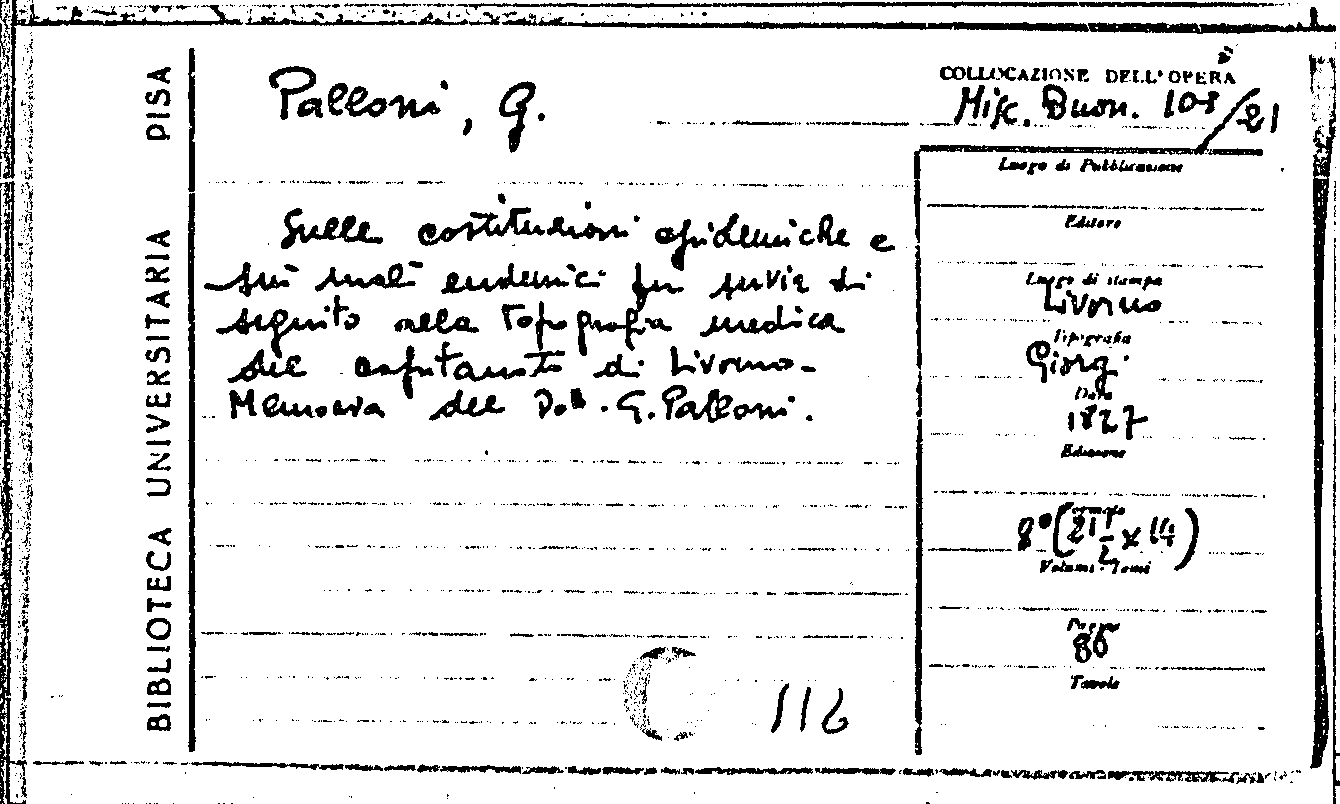 BIBLIOTECA UNIVERSITARIA PISA
Palloni, G.
COLLOCAZIONE DELL'OPERA
Misc. Buon. 108/21
Sulle costituzioni epidemiche e
sui mali endemici per servir di
seguito alla topografia medica
del capitanato di Livorno-
Memoria del Dott. G. Palloni.
112
Luogo di Pubblicazione
Editore
Luogo di stampa
Livorno
Tipografia
Giorgi
Data
1827
Edizione
Formato
8° (21 1/2 x 14)
Volumi - Tomi
Pagine
86
Tavole